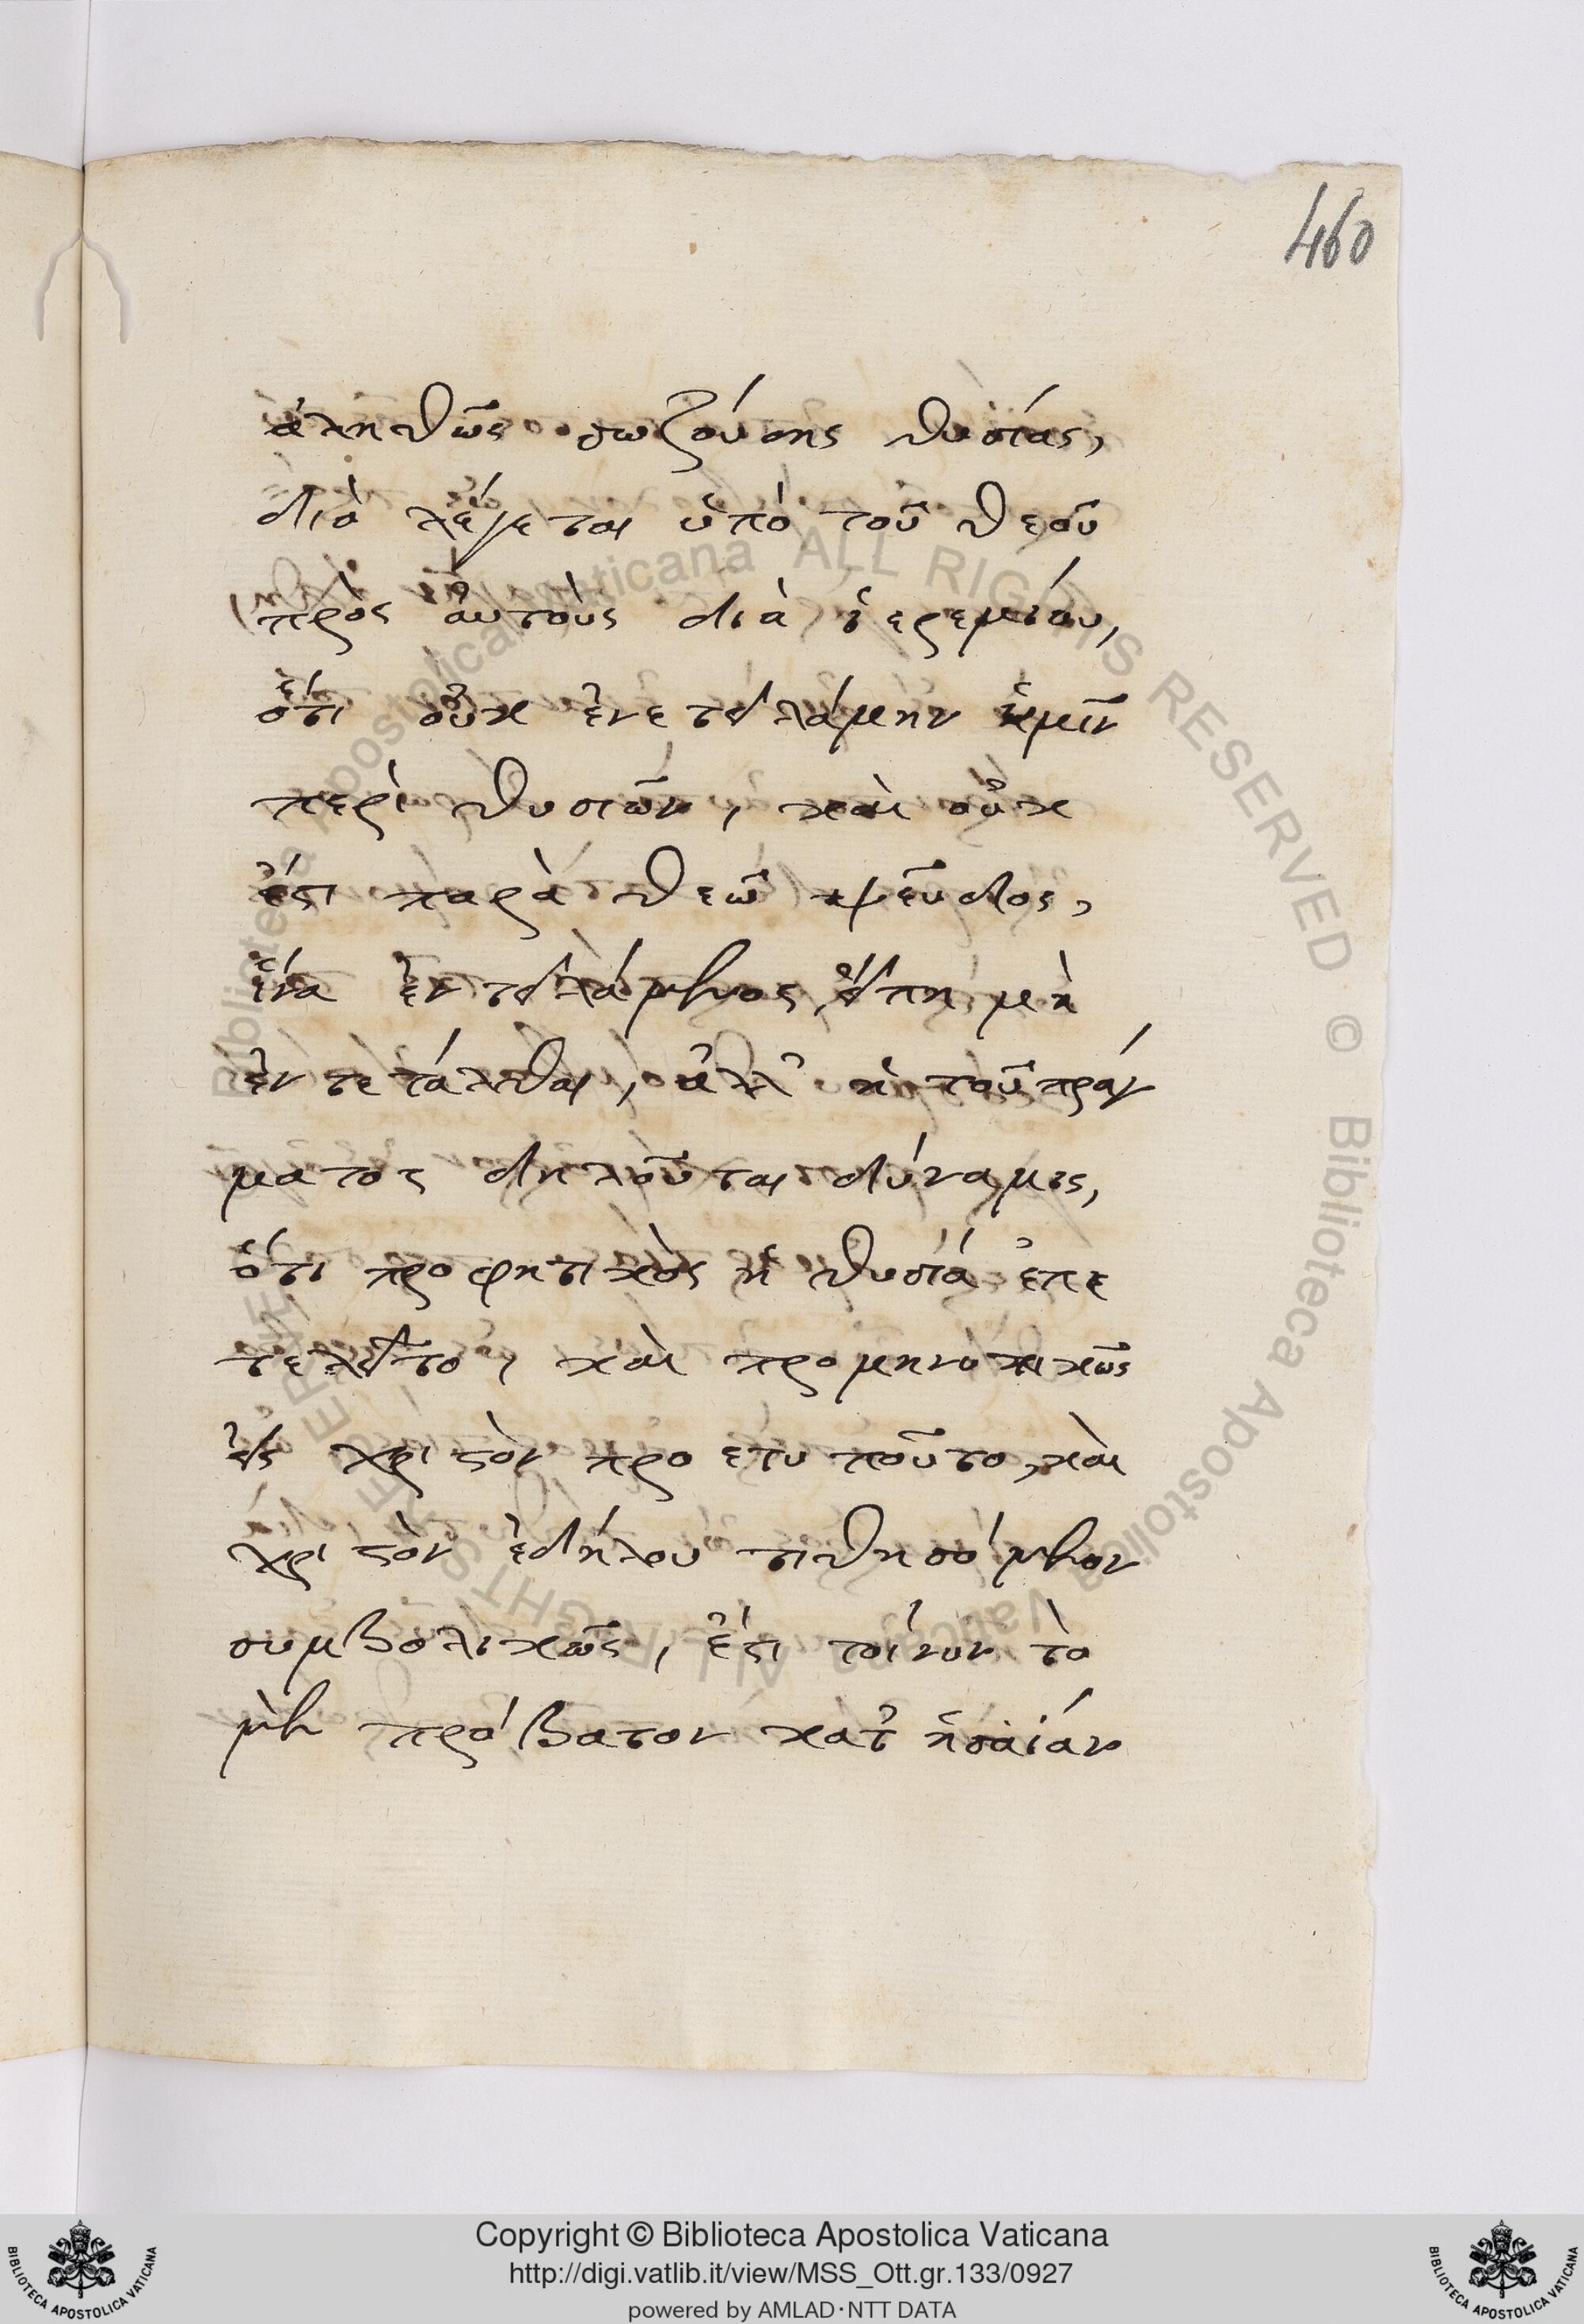 460
ἀληθῶς σωζούσης θυσίας,
διὸ λέγεται ὑπὸ τοῦ θεοῦ
πρὸς αὐτοὺς διὰ ἱερεμίου,
ὅτι οὐκ ἐνετειλάμην ὑμῖν
περὶ θυσιῶν, καὶ οὐκ
ἔστι παρὰ θεῶ ψεῦδος,
ἵνα ἐντειλάμενος εἴπη μὴ
ἐντετάλθαι, ἀλλ' ἡ τοῦ πράγ
ματος δηλοῦται δύναμις,
ὅτι προφητικὸς ἡ θυσία ἐπε
τελεῖτο, καὶ προμηνυτικῶς
εἰς χριστὸν προετυποῦτο, καὶ
χριστὸν ἐδήλου τιθησόμενον
συμβολικῶς, ἔστι τοίνυν τὸ
μὲν πρόβατον κατ' ἡσαΐαν
Biblioteca Apostolica Vaticana ALL RIGHTS RESERVED © Biblioteca Apostolica Vaticana ALL RIGHTS RESERVED
Copyright © Biblioteca Apostolica Vaticana
http://digi.vatlib.it/view/MSS_Ott.gr.133/0927
powered by AMLAD·NTT DATA
BIBLIOTECA APOSTOLICA VATICANA
BIBLIOTECA APOSTOLICA VATICANA